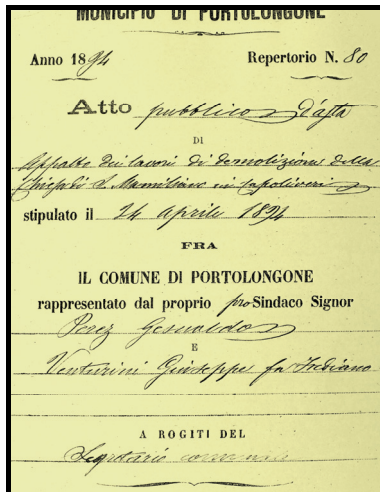 MUNICIPIO DI PORTOLONGONE
Anno 1894 Repertorio N. 80
Atto pubblico d'asta
DI
Appalto dei lavori di demolizione della
Chiesa di S. Mamiliano in Capoliveri
stipulato il 24 Aprile 1894
FRA
IL COMUNE DI PORTOLONGONE
rappresentato dal proprio pro Sindaco Signor
Perez Gesualdo
E
Venturini Giuseppe fu
A ROGITI DEL
Segretario comunale